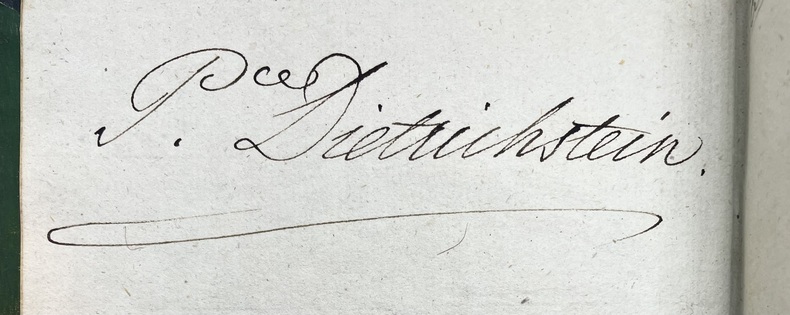 Pce. Dietrichstein.